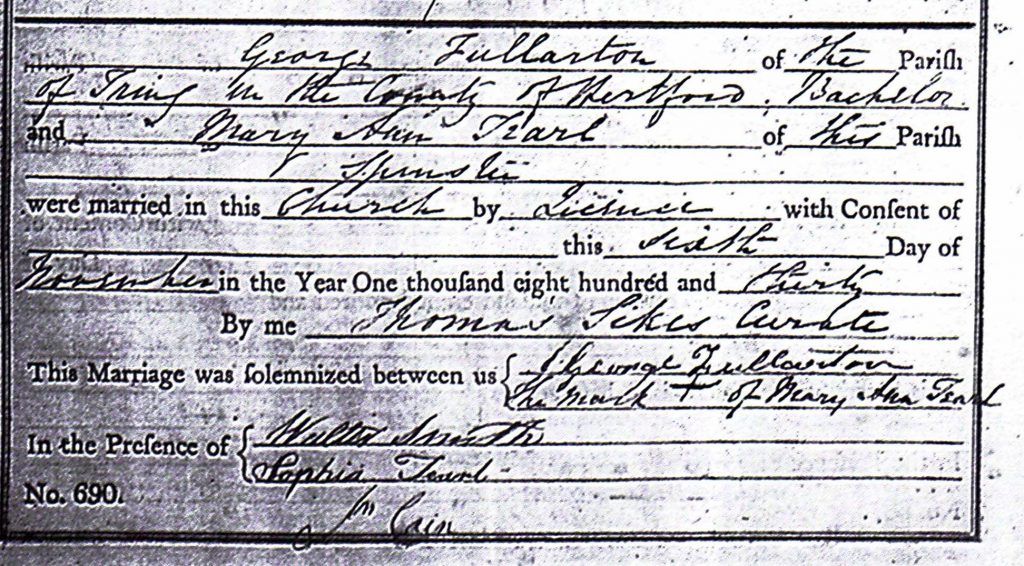 George Fullarton of the Pariſh
of Tring in the County of Hertford. Bachelor
and Mary Ann Tearl of this Pariſh
Spinster
were married in this Church by Licence with Conſent of
this sixth Day of
November in the Year One thouſand eight hundred and thirty
By me Thomas Sikes Curate
This Marriage was ſolemnized between us { George Fullarton
The Mark + of Mary Ann Tearl
In the Preſence of { Walter Smith
Sophia Tearl
No. 690.
Jn Cain